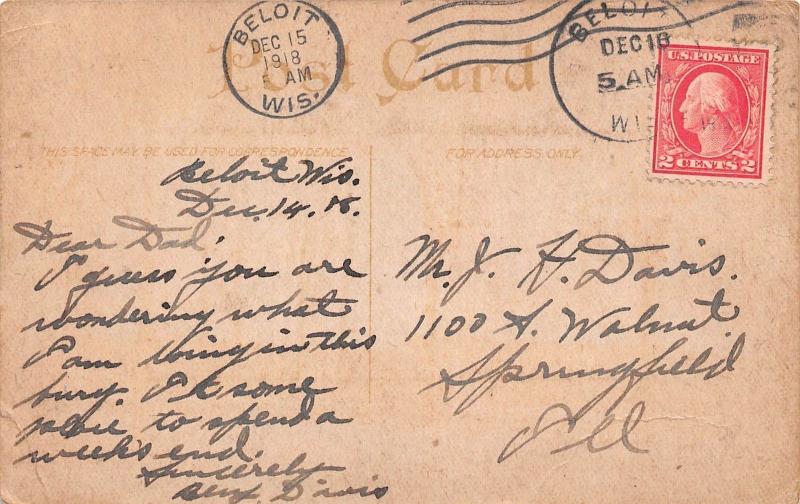 BELOIT
DEC 15
1918
AM
WIS.
BELOIT
DEC 16
5 AM
WIS
U.S. POSTAGE
2 CENTS 2
Post Card
THIS SPACE MAY BE USED FOR CORRESPONDENCE
FOR ADDRESS ONLY.
Beloit Wis.
Dec. 14. 18.
Dear Dad,
I guess you are
wondering what
I am doing in this
burg. It some
place to spend a
week's end.
Sincerely
Davis
Mr. J. H. Davis.
1100 S. Walnut.
Springfield
Ill